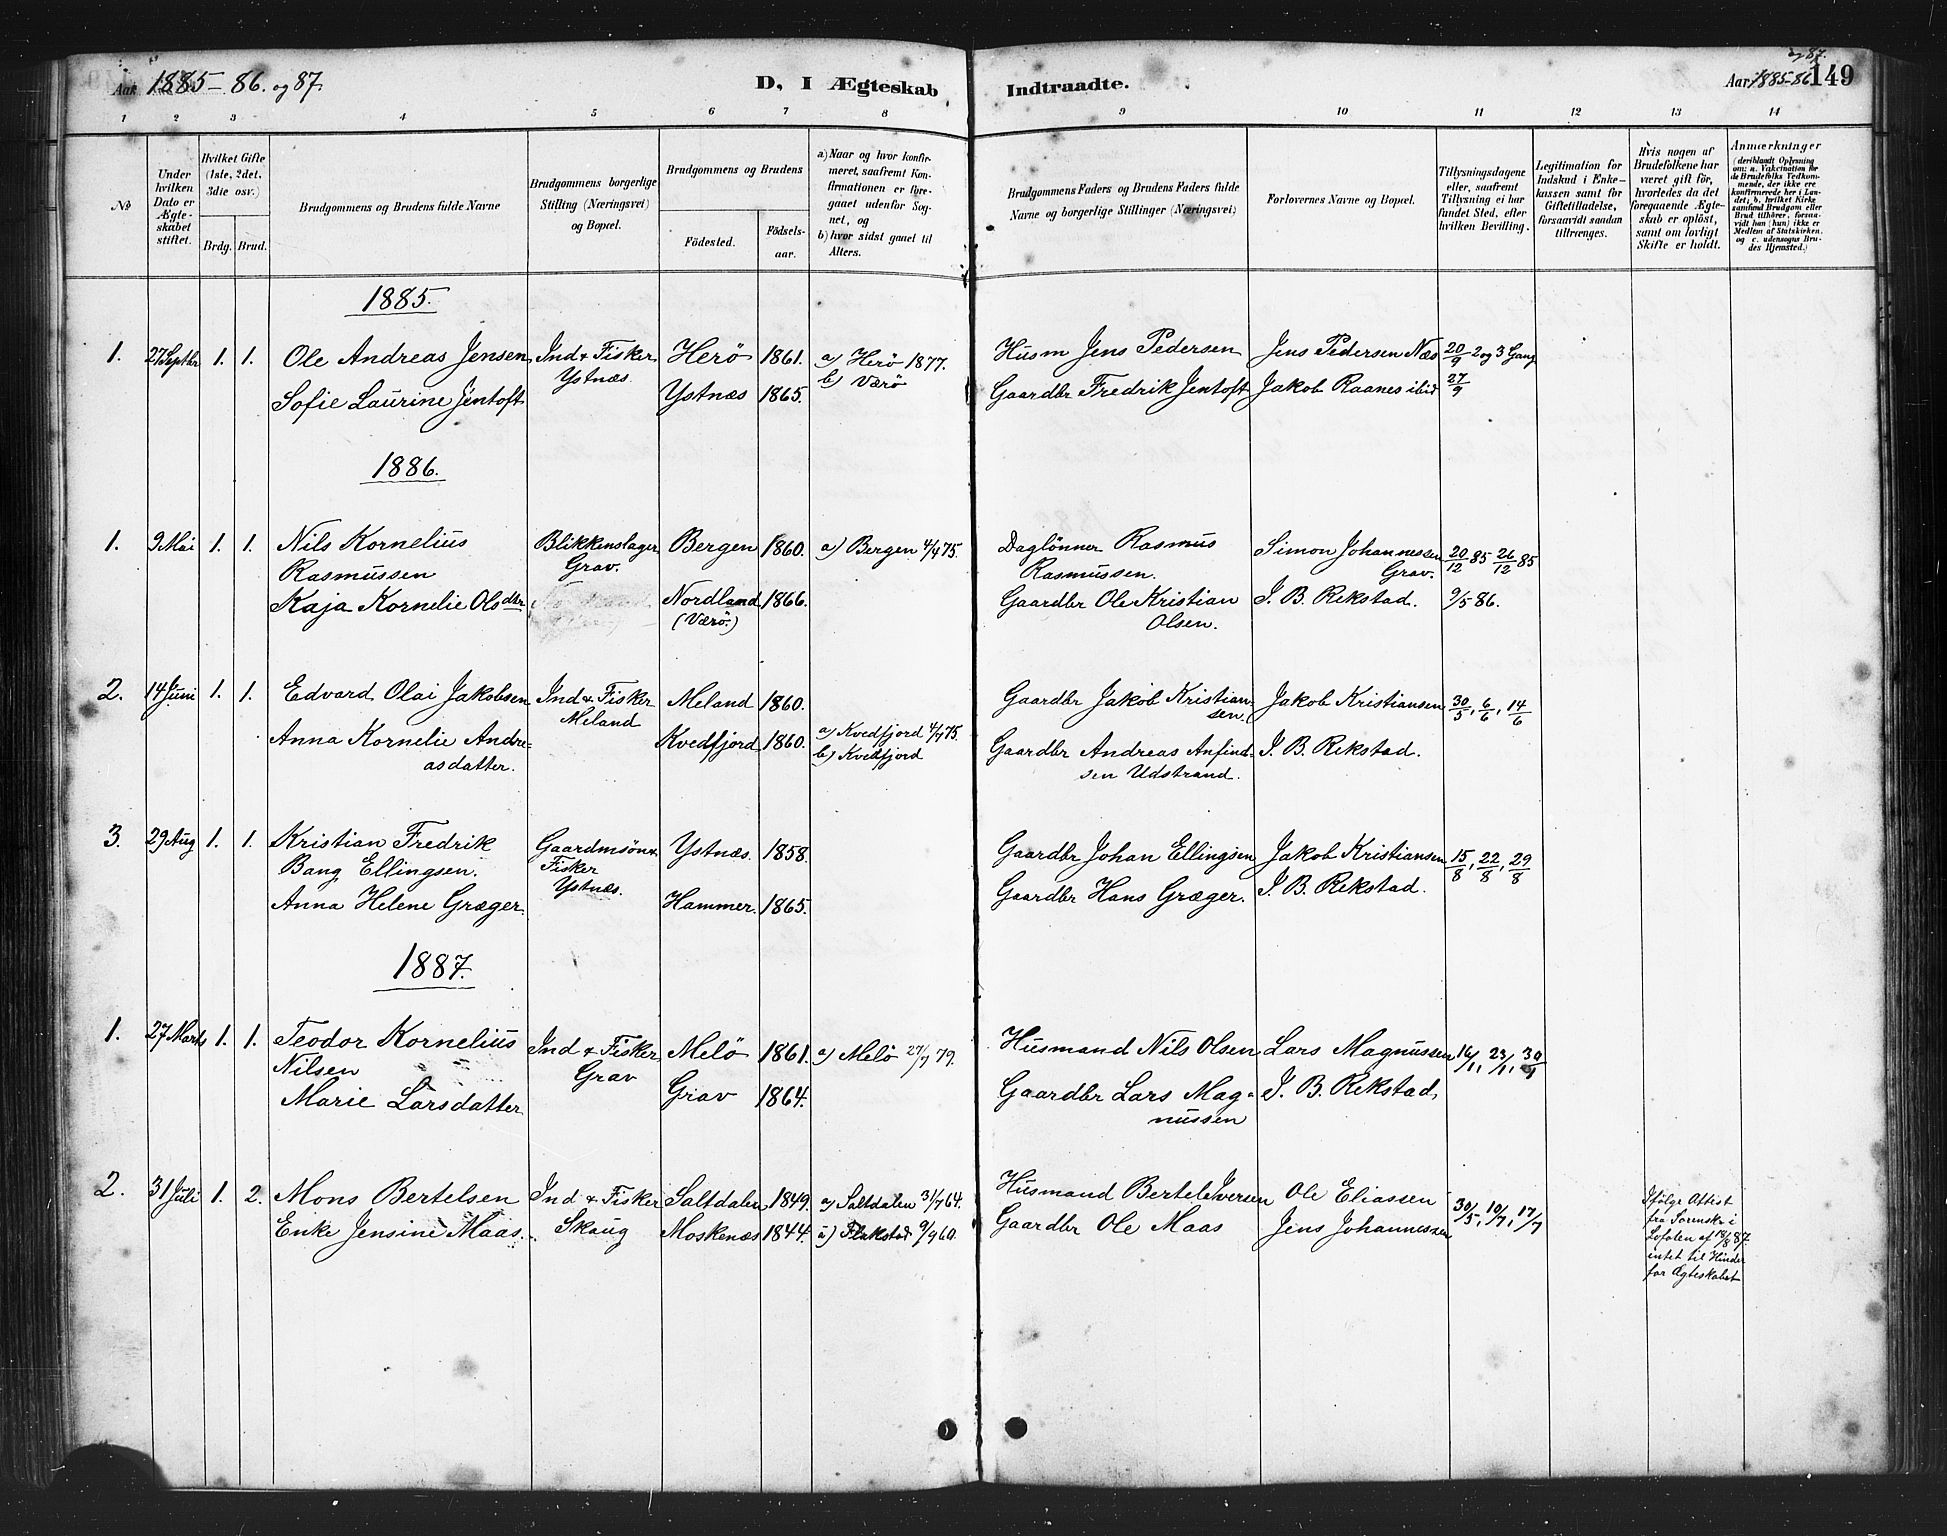 Aar 1885-86. og 87.
D, I Ægteskab Indtraadte.
og 87.
Aar 1885-86 149
1 2 3 4 5 6 7 8 9 10 11 12 13 14
No
Under hvilken Dato er Ægteskabet stiftet.
Hvilket Gifte (1ste, 2det, 3die osv.)
Brdg. Brud.
Brudgommens og Brudens fulde Navne
Brudgommens borgerlige Stilling (Næringsvei) og Bopæl.
Brudgommens og Brudens
Fødested.
Fødselsaar.
a) Naar og hvor konfirmeret, saafremt Konfirmationen er foregaaet udenfor Sognet, og
b) hvor sidst gaaet til Alters.
Brudgommens Faders og Brudens Faders fulde Navne og borgerlige Stillinger (Næringsvei)
Forlovernes Navne og Bopæl.
Tillysningsdagene eller, saafremt Tillysning ei har fundet Sted, efter hvilken Bevilling.
Legitimation for Indskud i Enkekassen samt for Giftetilladelse, forsaavidt saadan tiltrænges.
Hvis nogen af Brudefolkene har været gift før, hvorledes da det foregaaende Ægteskab er opløst, samt om lovligt Skifte er holdt.
Anmærkninger
(deriblandt Oplysning om: a. Vakcination for de Brudefolks Vedkommende, der ikke ere konfirmerede her i Landet; b. hvilket Kirkesamfund Brudgom eller Brud tilhører, forsaavidt han (hun) ikke er Medlem af Statskirken, og c. udensogns Brudes Hjemsted.)
1885.
1. 27 Septbr 1. 1. Ole Andreas Jensen Ind & Fisker Herö 1861. a) Herö 1877. Husm Jens Pedersen Jens Pedersen Næs 20/9 2 og 3 Gang
Ystnæs. b) Værö
Sofie Laurine Jentoft Ystnæs 1865. Gaardbr Fredrik Jentoft Jakob Raanes ibid 27/9
1886.
1. 9 Mai 1. 1. Nils Kornelius Blikkenslager Bergen 1860. a) Bergen 4/4 75. Daglönner Rasmus Simon Johannessen 20/12 85 26/12 85
Rasmussen Grav. Rasmussen. Grav.
Kaja Kornelie Olsdtr Nordland 1866. Gaardbr Ole Kristian J. B. Rekstad. 9/5 86.
(Værö.) Olsen.
2. 14 Juni 1. 1. Edvard Olai Jakobsen Ind & Fisker Meland 1860. Gaardbr Jakob Kristian- Jakob Kristiansen 30/5, 6/6, 14/6
Meland sen.
Anna Kornelie Andre- Kvedfjord 1860. a) Kvedfjord 4/7 75. Gaardbr Andreas Anfind- J. B. Rekstad.
asdatter. b) Kvedfjord sen Udstrand.
3. 29 Aug 1. 1. Kristian Fredrik Gaardmsön & Ystnæs. 1858. Gaardbr Johan Ellingsen Jakob Kristiansen 15/8, 22/8, 29/8
Bang Ellingsen. Fisker Ystnæs.
Anna Helene Græger. Hammer. 1865. Gaardbr Hans Græger. J. B. Rekstad.
1887.
1. 27 Marts 1. 1. Teodor Kornelius Ind & Fisker Melö 1861. a) Melö 27/7 79. Husmand Nils Olsen Lars Magnussen 16/1, 23/1, 30/1
Nilsen Grav
Marie Larsdatter Grav 1864. Gaardbr Lars Mag- J. B. Rekstad.
nussen
2. 31 Juli 1. 2. Mons Bertelsen Ind & Fisker Saltdalen 1849. a) Saltdalen 31/7 64. Husmand Bertel Iversen Ole Eliassen 30/5, 10/7, 17/7
Enke Jensine Maas. Skaug Moskenæs 1844. a) Flakstad 9/9 60. Gaardbr Ole Maas Jens Johannessen
Ifølge Attest
fra Sorenskr i
Lofoten af 18/8 87.
intet til Hinder
for Ægteskabet